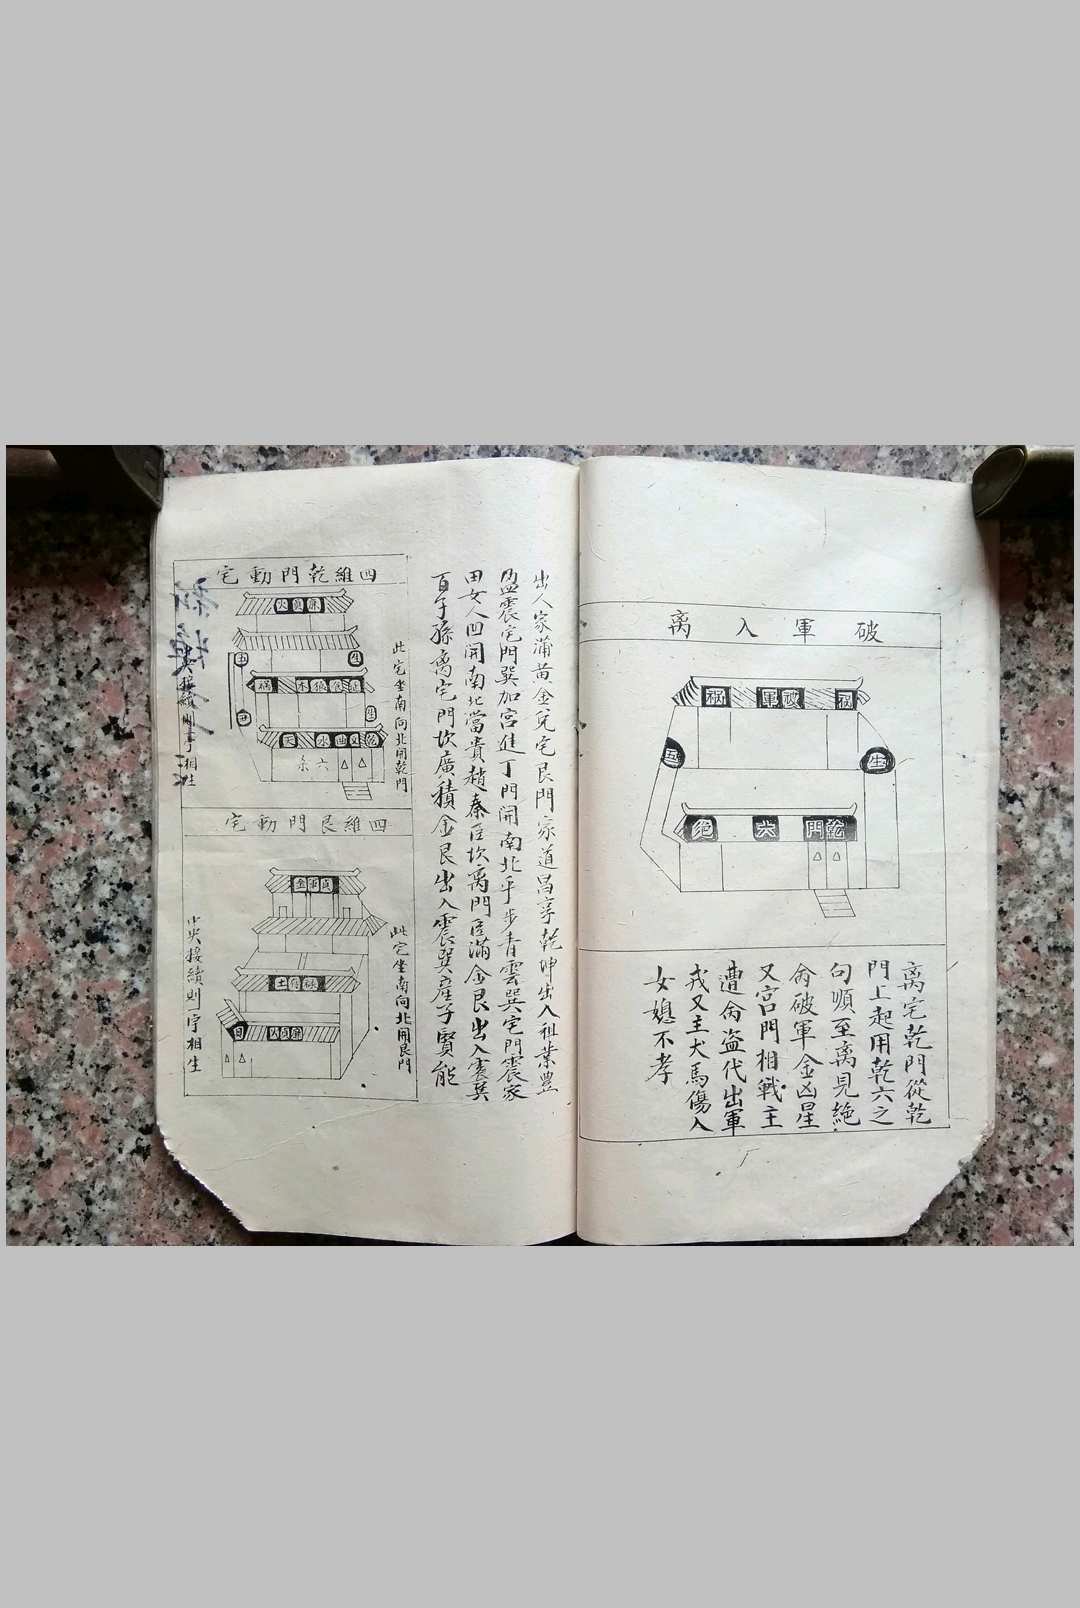 破軍入离
禍
破軍
禍
生
五
乾門
六
絕
离宅乾門從乾
門上起用乾六之
句順至离見絶
命破軍金凶星
又宫門相戰主
遭命盗代出軍
戎又主犬馬傷人
女媳不孝
出人家蒲黄金兌宅艮門家道昌享乾坤出入祖業豊
盈震宅門巽加宫進丁門開南北平步青雲巽宅門震家
田女人四開南北當貴趙秦臣坎离門臣滿金艮出入震巽
百子孫离宅門坎廣積金艮出入震巽産子賢能
四維乾門動宅
此宅坐南向北開乾門
廉貞火
生
五
禍
木
生
天
水曲文乾
六
四維艮門動宅
此宅坐南向北開艮門
金軍
土
廉貞火
中央接續則一字相生